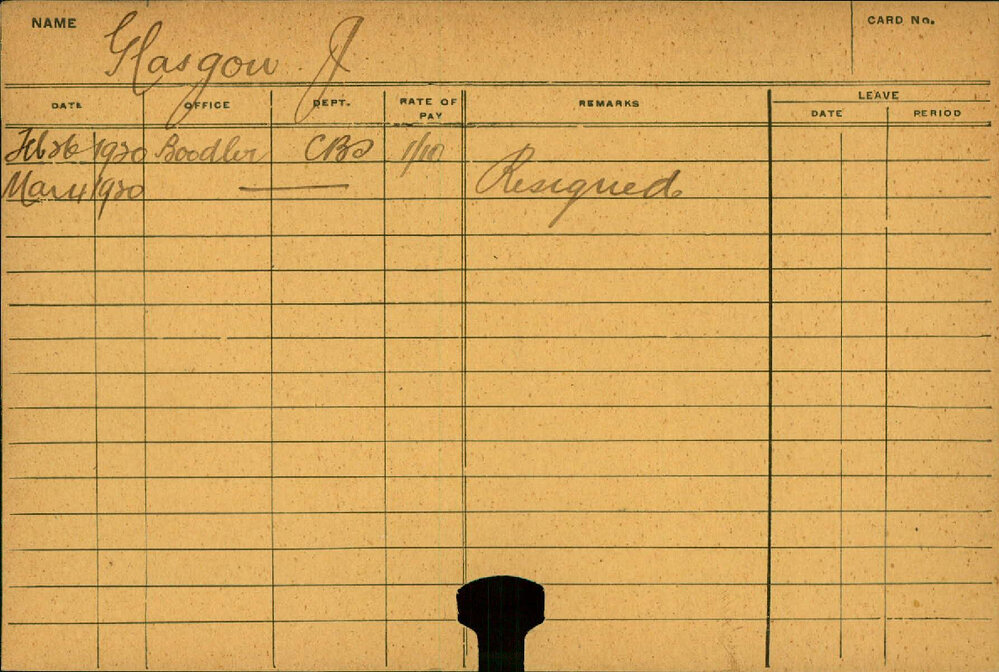 NAME Glasgow J CARD No.
DATE OFFICE DEPT. RATE OF PAY REMARKS LEAVE
DATE PERIOD
Feb 26 1920 Boodler CBS 1/10
Mar 4 1920 Resigned